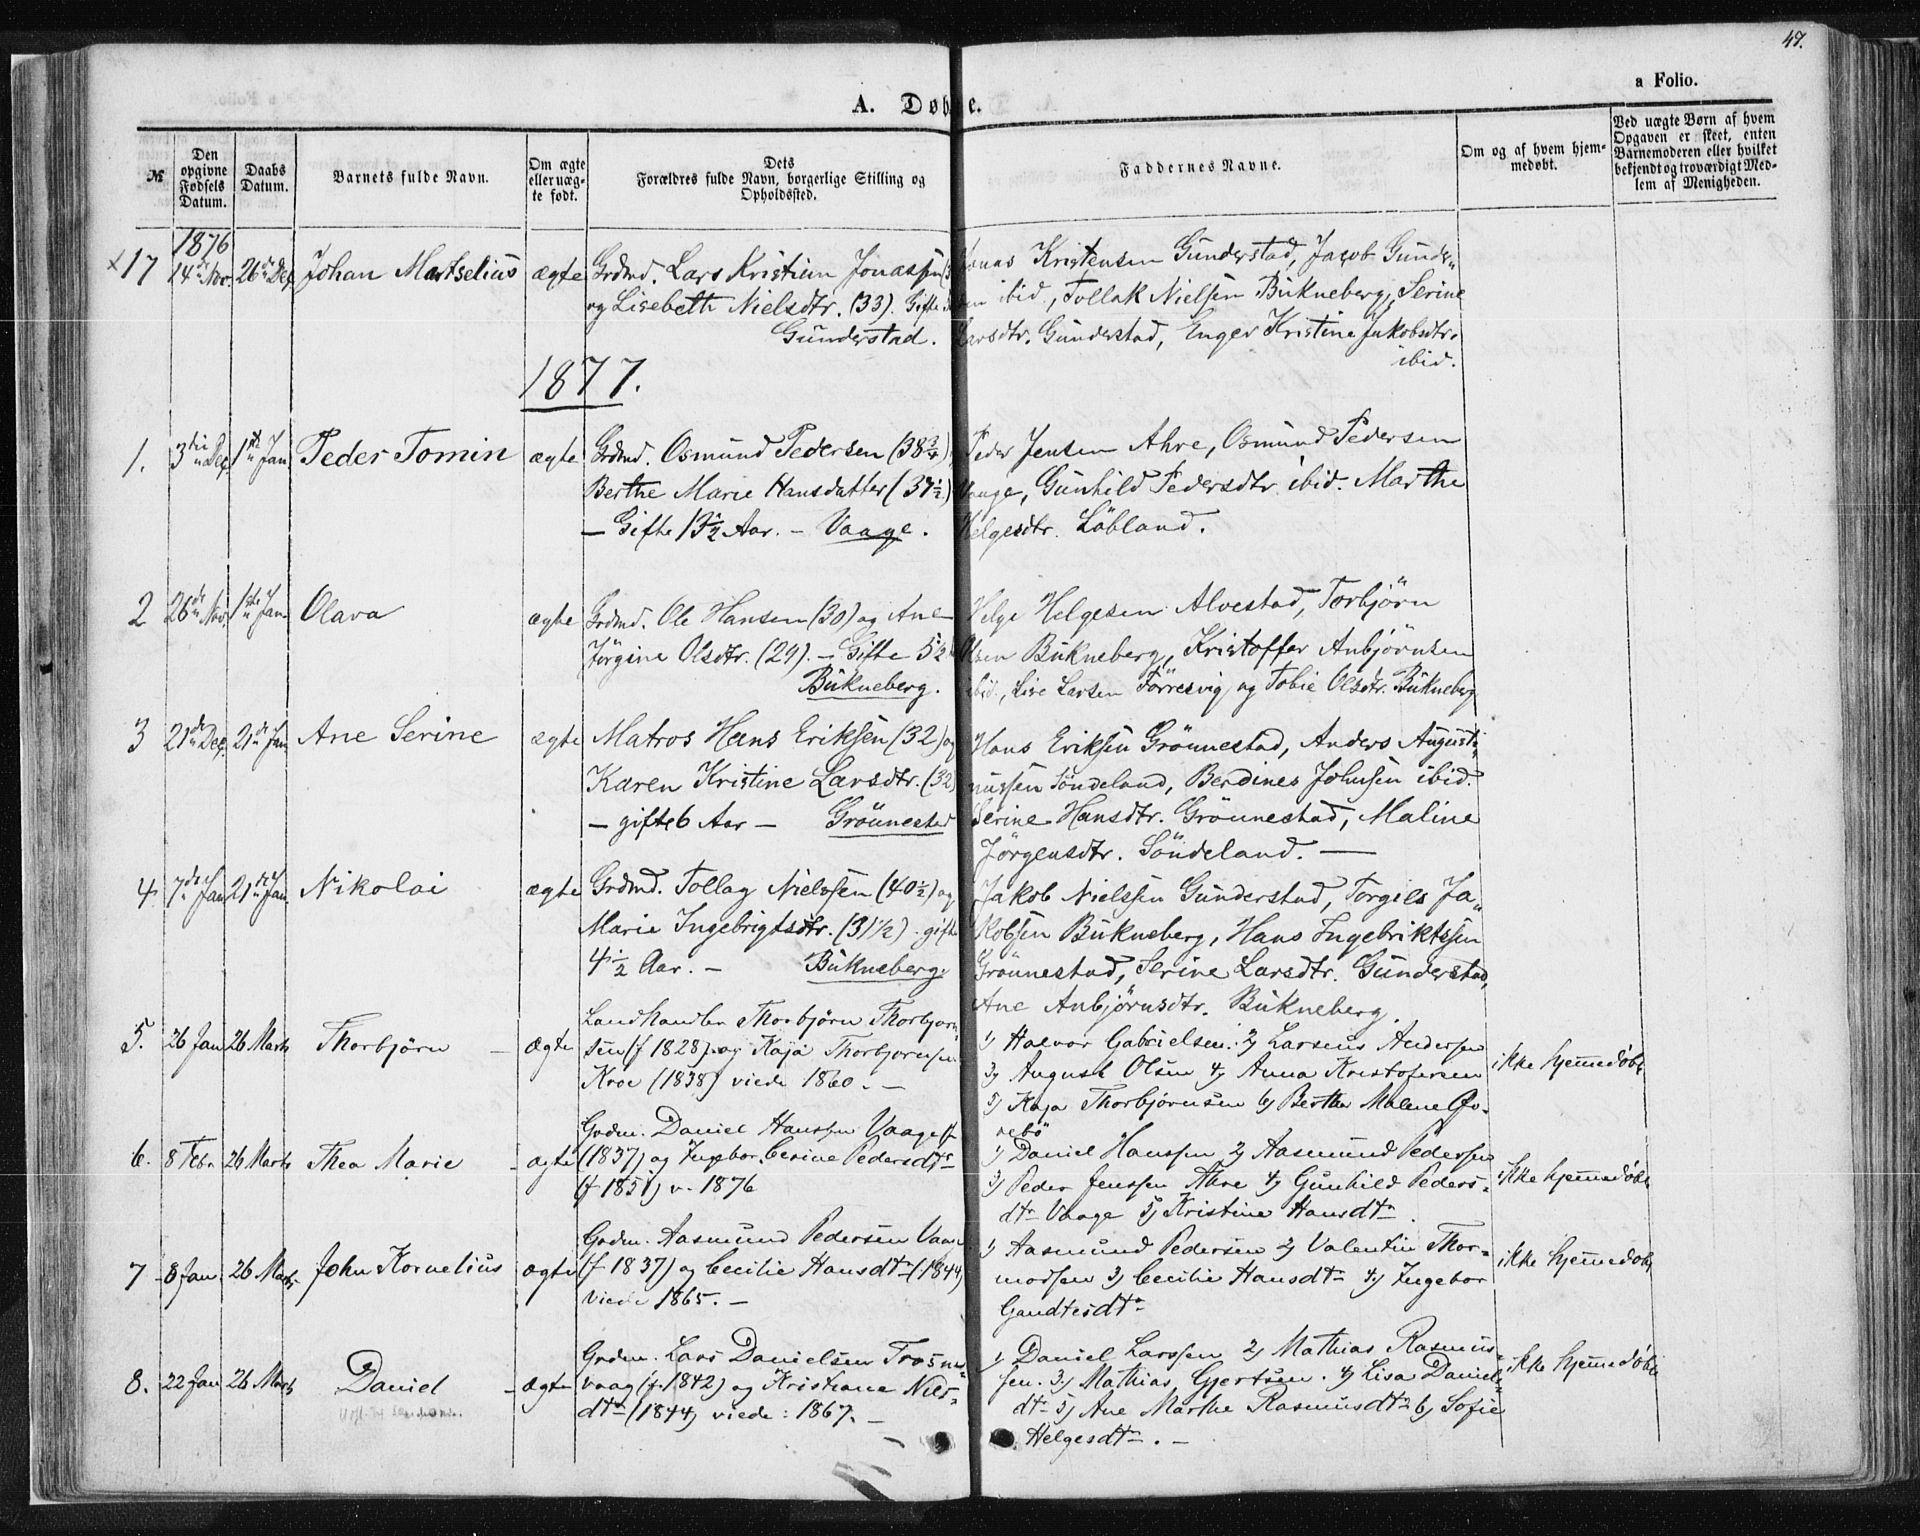 47.
a Folio.
A. Døbte.
№
Den opgivne Fødsels Datum.
Daabs Datum.
Barnets fulde Navn.
Om ægte eller uægte født.
Dets Forældres fulde Navn, borgerlige Stilling og Opholdssted.
Faddernes Navne.
Om og af hvem hjemmedøbt.
Ved uægte Børn af hvem Opgaven er skeet, enten Barnemoderen eller hvilket bekjendt og troværdigt Medlem af Menigheden.
1876
17 14de Nov. 26de Dec Johan Martselius ægte Grdmd. Lars Kristian Jonassen
og Lisebeth Nielsdtr. (33). Gifte
Gunderstad.
Jonas Kristensen Gunderstad, Jacob Gunder-
sen ibid., Tollak Nielsen Bukneberg, Serine
Larsdtr. Gunderstad, Enger Kristine Jakobsdtr.
ibid.
1877.
1. 3die Dec 1ste Jan Peder Tomin ægte Grdmd. Osmund Pedersen (38¾)
Berthe Marie Hansdatter (37½)
— Gifte 13½ Aar. — Vaage.
Peder Jensen Ahre, Osmund Pedersen
Vaage, Gunhild Pedersdtr. ibid. Marthe
Helgesdtr. Løbland.
2 26de Nov. 1ste Jan. Olava ægte Grdmd. Ole Hansen (30) og Ane
Jørgine Olsdtr. (29). — Gifte 5½
Bukneberg.
Helge Helgesen Alvestad, Torbjörn
Olsen Bukneberg, Kristoffer Anbjörnsen
ibid., Live Larsen Førresvig og Tobie Olsdtr. Bukneberg
3 21de Dec. 21de Jan Ane Serine ægte Matros Hans Eriksen (32) og
Karen Kristine Larsdtr. (32)
— gifte 6 Aar — Grönnestad
Hans Eriksen Grönnestad, Anders Augusti-
nussen Söndeland, Berdines Johnsen ibid.
Serine Hansdtr. Grönnestad, Maline
Jörgensdtr. Söndeland. —
4 7de Jan 21de Jan. Nikolai ægte Grdmd. Tollag Nielssen (40½) og
Marie Ingebrigtsdtr. (31½). gifte
4½ Aar. — Bukneberg
Jakob Nielssen Gunderstad, Torgils Ja-
kobsen Bukneberg, Hans Ingebriktssen
Grönnestad, Serine Larsdtr. Gunderstad,
Ane Anbjörnsdtr. Bukneberg.
5. 26 Jan 26 Marts Thorbjörn ægte Landhandler Thorbjörn Thorbjørn-
sen (f 1828) og Kaja Thorbjørnsen
Kroe (1838) viede 1860. —
1) Halvor Gabrielsen. 2) Larsens Andersen
3) August Olsen 4) Anna Kristofersen
5) Kaja Thorbjørnsen 6) Berthe Malene Gø-
rebö
ikke hjemmedøbt
6. 8 Febr 26 Marts Thea Marie ægte Grdm. Daniel Hanssen Vaage (f
(1837) og Ingebor Cesine Pedersdtr
(f 1851) v. 1876
1) Daniel Hanssen 2) Aasmund Pedersen
3) Peder Jenssen Ahre 4) Gunhild Peders-
dtr Vaage 5) Kristine Hansdtr.
ikke hjemmedøbt
7 8 Jan. 26 Marts John Kornelius ægte Grdm. Aasmund Pedersen Vaage
(f 1837) og Cecilie Hansdtr (1844)
viede 1865. —
1) Aasmund Pedersen 2) Valentin Thor-
modsen 3) Cecilie Hansdtr 4) Ingebor
Gaudtesdtr
ikke hjemmedøbt
8. 22 Jan 26 Marts Daniel ægte Grdm. Lars Danielsen Trosna-
vaag (f. 1842) og Kristiane Niels-
dtr (1844) viede: 1867. —
1) Daniel Larssen 2) Mathias Rasmus-
sen. 3) Mathias Gjertsen. 4) Lisa Daniels-
dtr 5) Ane Marthe Rasmusdtr 6) Sofie
Helgesdtr. —
ikke hjemmedøbt